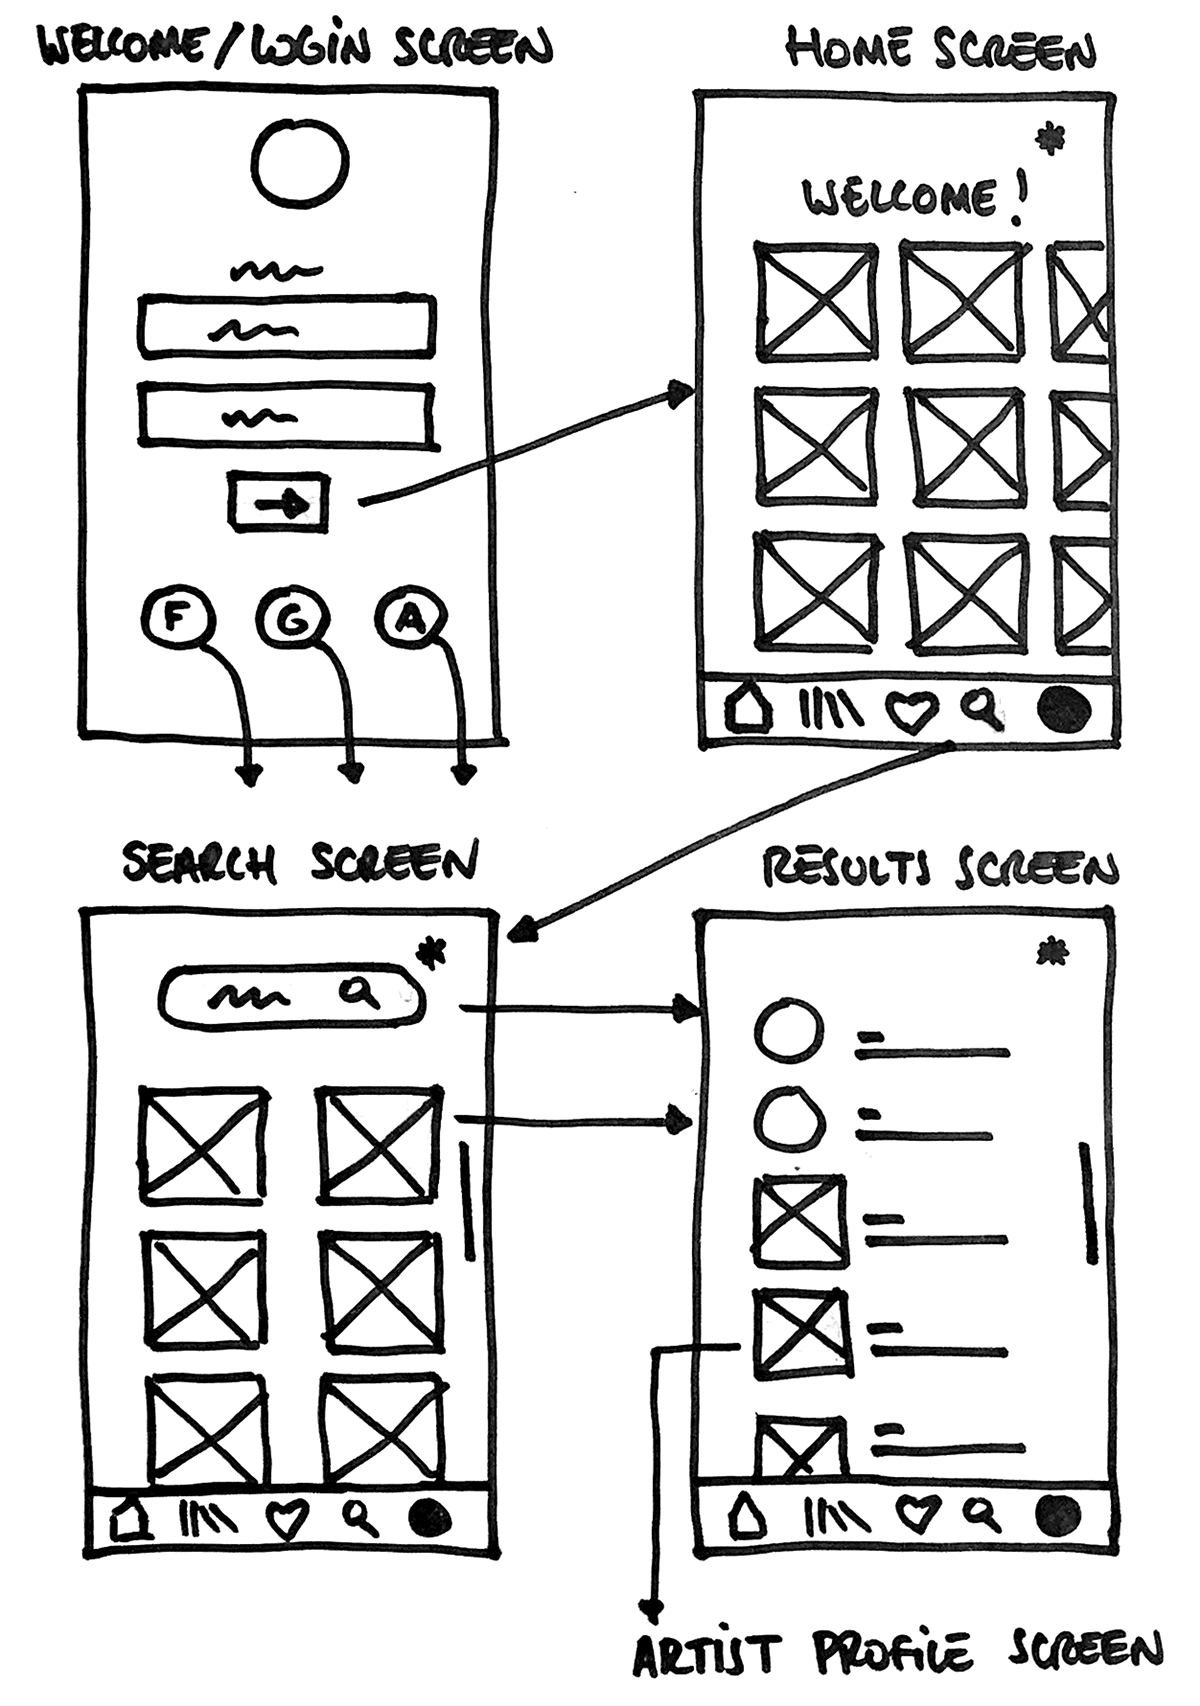 WELCOME/LOGIN SCREEN
HOME SCREEN
WELCOME!
F G A
SEARCH SCREEN
RESULTS SCREEN
ARTIST PROFILE SCREEN